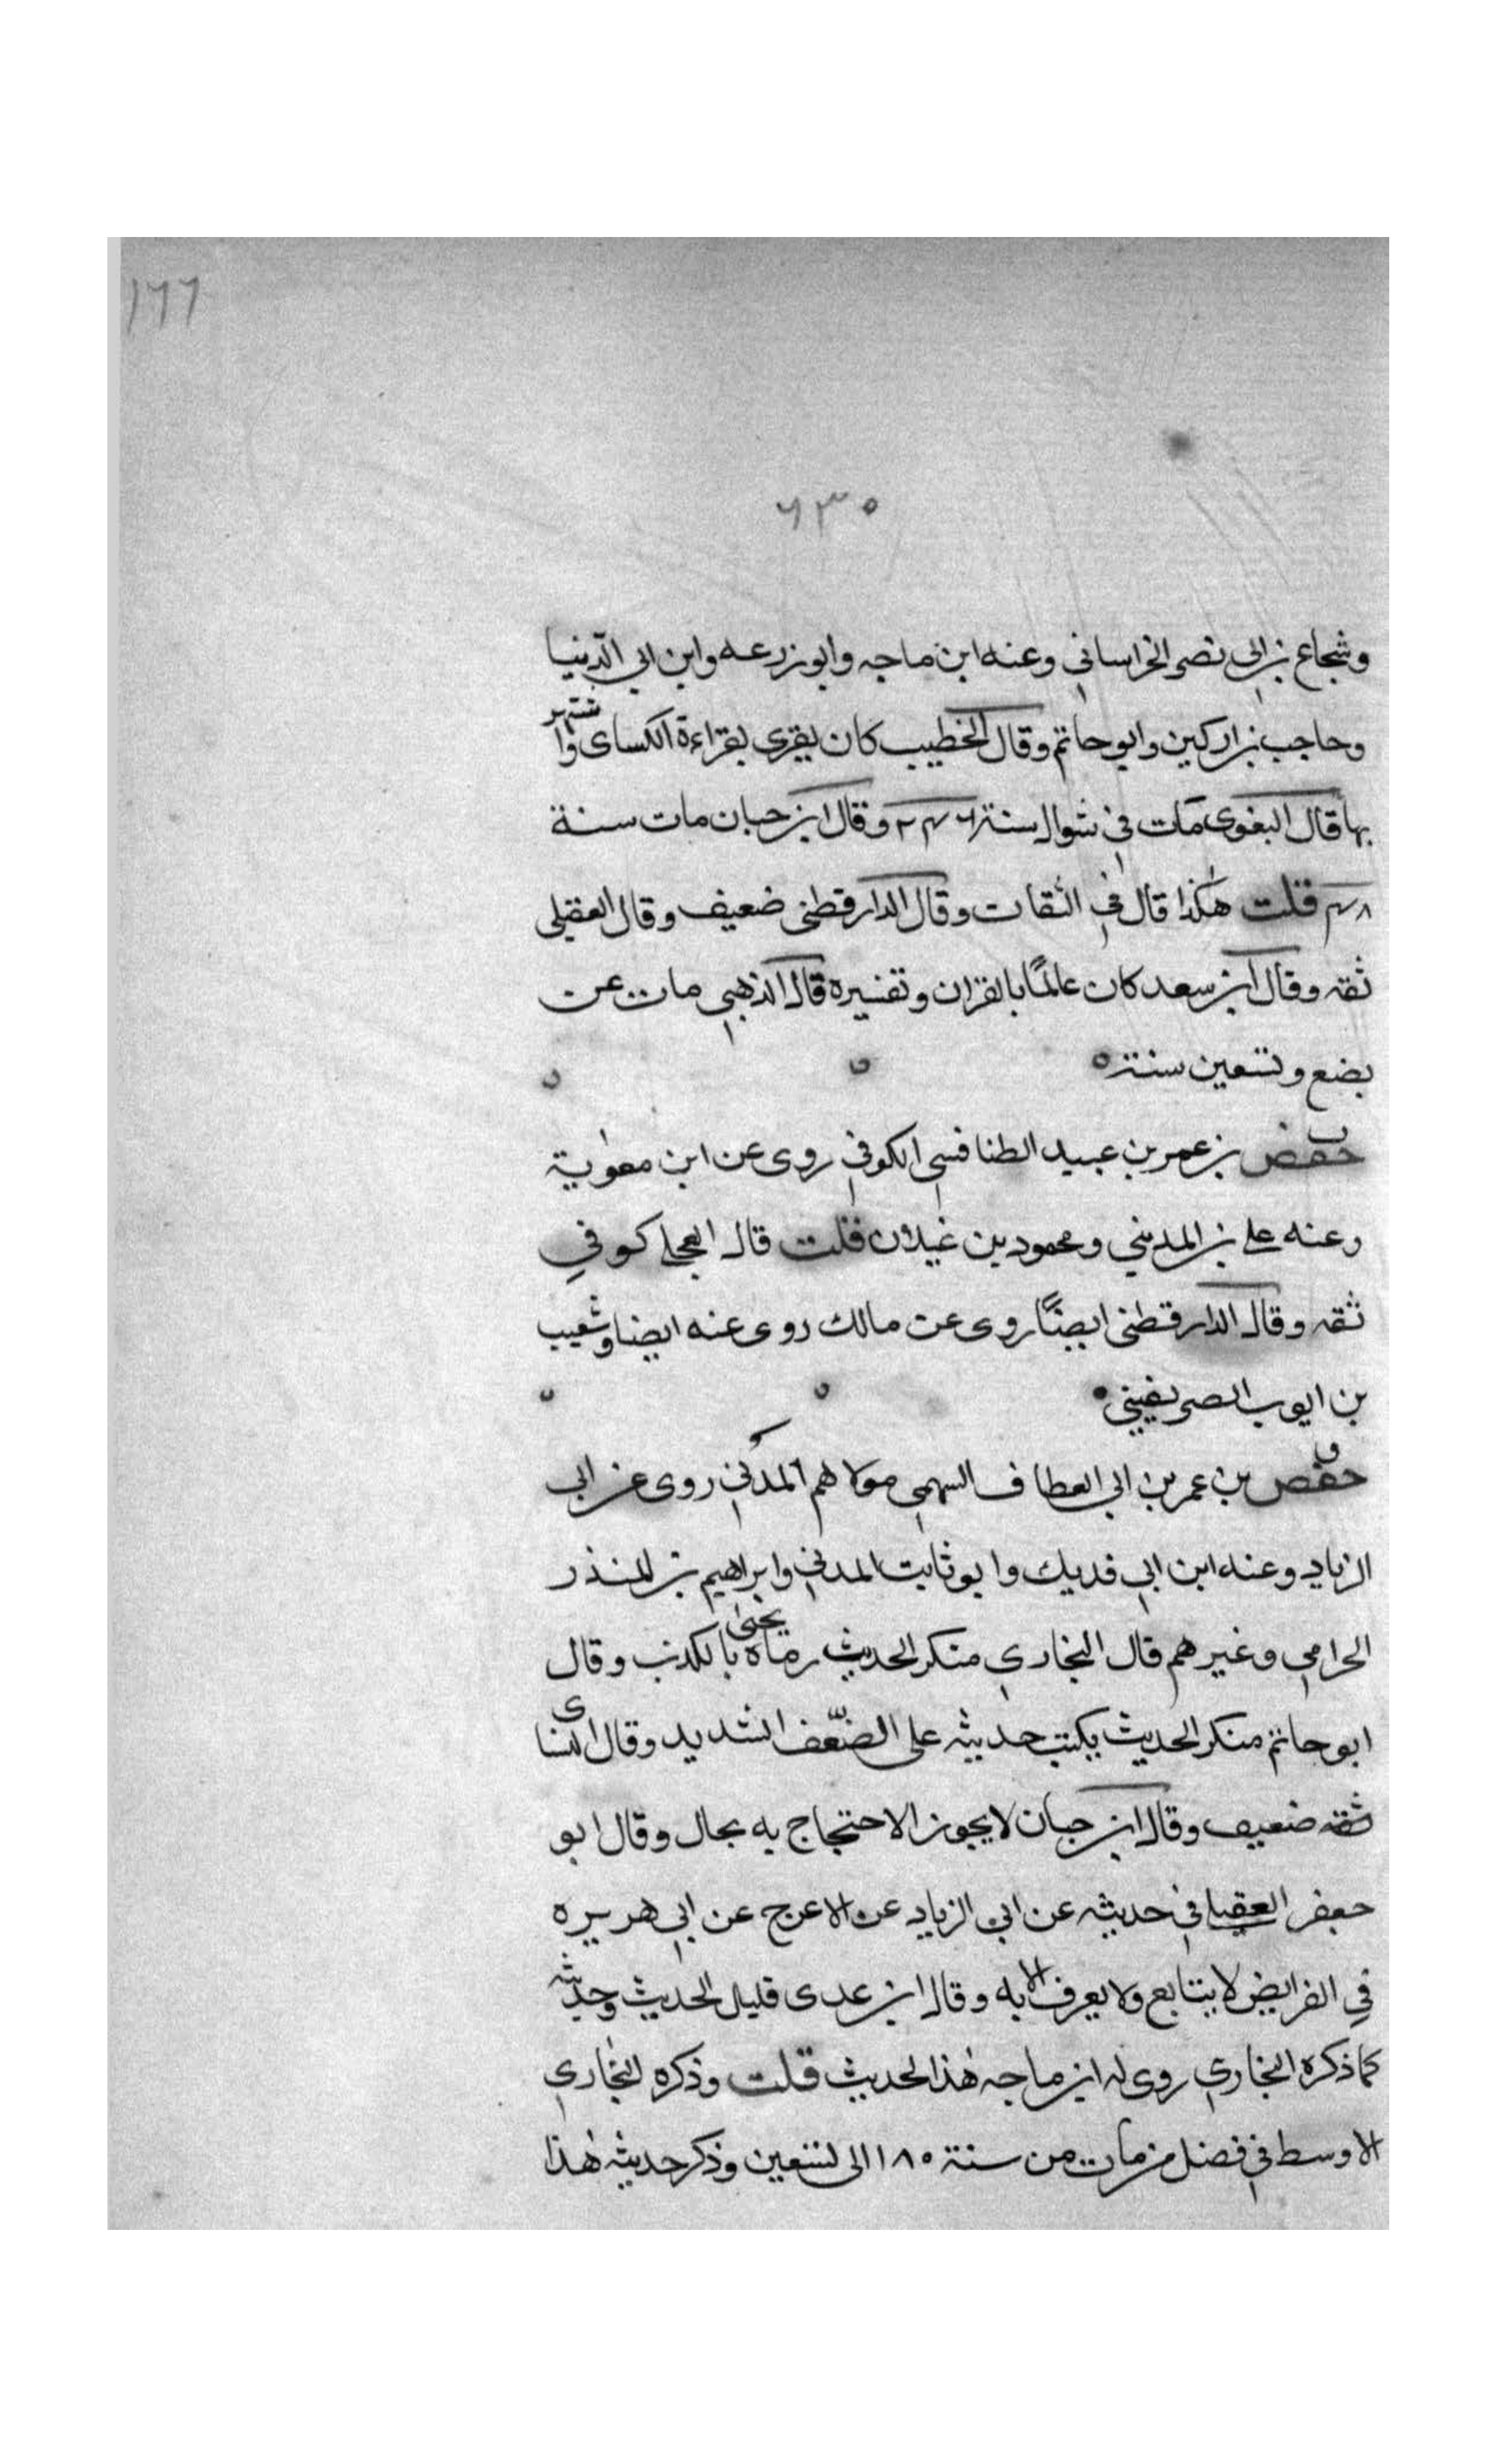 ١٦٦
٦٣٠
وشجاع بن ابى نصر الخراساني وعنه ابن ماجه وابو زرعه وابن ابي الدّنيا
وحاجب بن اركين وابو حاتم وقال الخطيب كان يقرى بقراءة الكساى واشتهر
بها قال البغوى مات في شوال سنة ٢٤٦ وقال ابن حبان مات سنة
٤٨ قلت هكذا قال في الثقات وقال الدارقطنى ضعيف وقال العقيلى
ثقه وقال ابن سعد كان عالمًا بالقران وتفسيره قال الذهبي مات عن
بضع وتسعين سنة ه
حفص بن عمر بن عبيد الطنافسي الكوفي روى عن ابن معوية
وعنه على بن المديني ومحمود بن غيلان قلت قال العجلى كوفي
ثقه وقال الدارقطنى ايضًا روى عن مالك روى عنه ايضا وشعيب
بن ايوب الصريفيني
حفص بن عمر بن ابي العطاف السهمي مولاهم المدني روى عن ابى
الزناد وعنه ابن ابي فديك وابو ثابت المدني وابراهيم بن المنذر
الحرامي وغيرهم قال البخاري منكر الحديث رماه يحيى بالكذب وقال
ابو حاتم منكر الحديث يكتب حديثه على الضّعف الشديد وقال النساى
ثقه ضعيف وقال ابن حبان لا يجوز الاحتجاج به بحال وقال ابو
جعفر العقيلى في حديثه عن ابي الزناد عن الاعرج عن ابي هريره
في الفرايض لا يتابع ولا يعرف الا به وقال ابن عدى قليل الحديث وحديثه
كما ذكره البخاري روى له ابن ماجه هذا الحديث قلت وذكره البخاري
الاوسط في فصل من مات من سنة ١٨٠ الى تسعين وذكر حديثه هذا